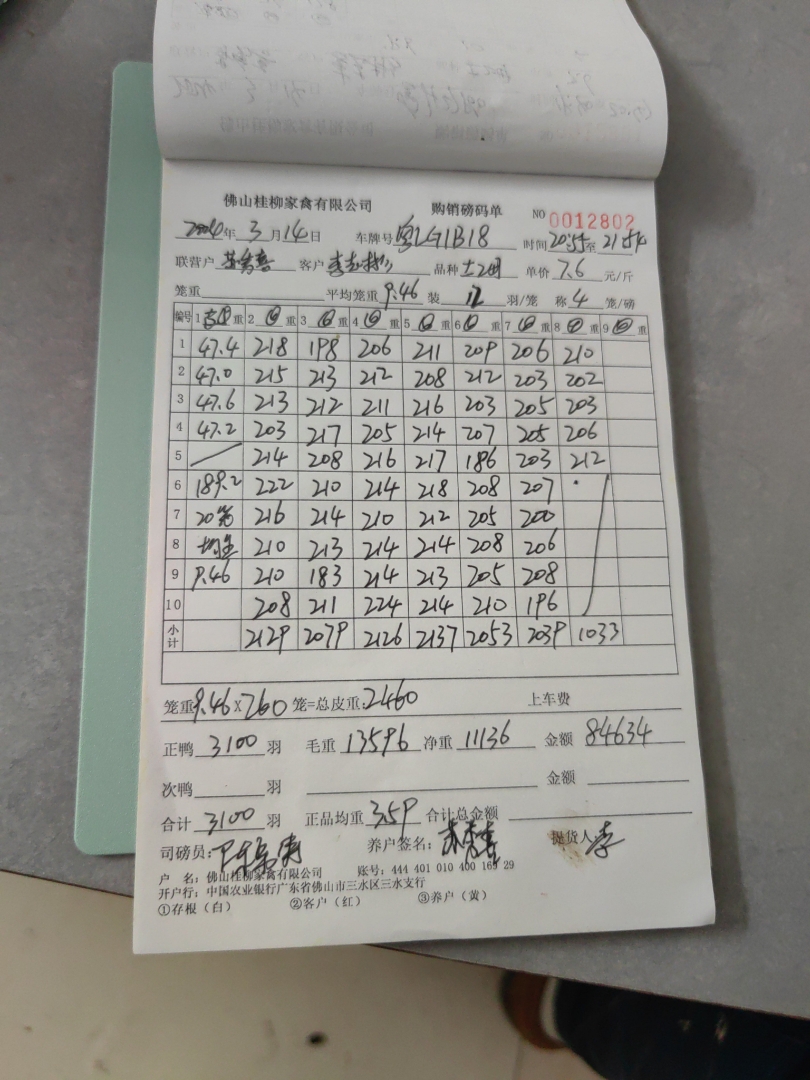 佛山桂柳家禽有限公司 购销磅码单 NO 0012802
2024年 3 月 14 日 车牌号 粤LG1B18 时间 20:55 至 21:54
联营户 客户 品种 土2 单价 7.6 元/斤
笼重 平均笼重 9.46 装 12 羽/笼 称 4 笼/磅
编号 1 重 2 重 3 重 4 重 5 重 6 重 7 重 8 重 9 重
1 47.4 218 198 206 211 209 206 210
2 47.0 215 213 212 208 212 203 202
3 47.6 213 212 211 216 203 205 203
4 47.2 203 217 205 214 207 205 206
5 214 208 216 217 186 203 212
6 189.2 222 210 214 218 208 207
7 20笼 216 214 210 212 205 200
8 210 213 214 214 208 206
9 9.46 210 183 214 213 205 208
10 208 211 224 214 210 196
小计 2129 2079 2126 2137 2053 2039 1033
笼重 9.46 X 260 笼=总皮重: 2460 上车费
正鸭 3100 羽 毛重 13596 净重 11136 金额 84634
次鸭 羽 金额
合计 3100 羽 正品均重 3.59 合计总金额
司磅员: 养户签名: 提货人 李
户 名: 佛山桂柳家禽有限公司 账号: 444 401 010 400 169 29
开户行: 中国农业银行广东省佛山市三水区三水支行
①存根（白） ②客户（红） ③养户（黄）